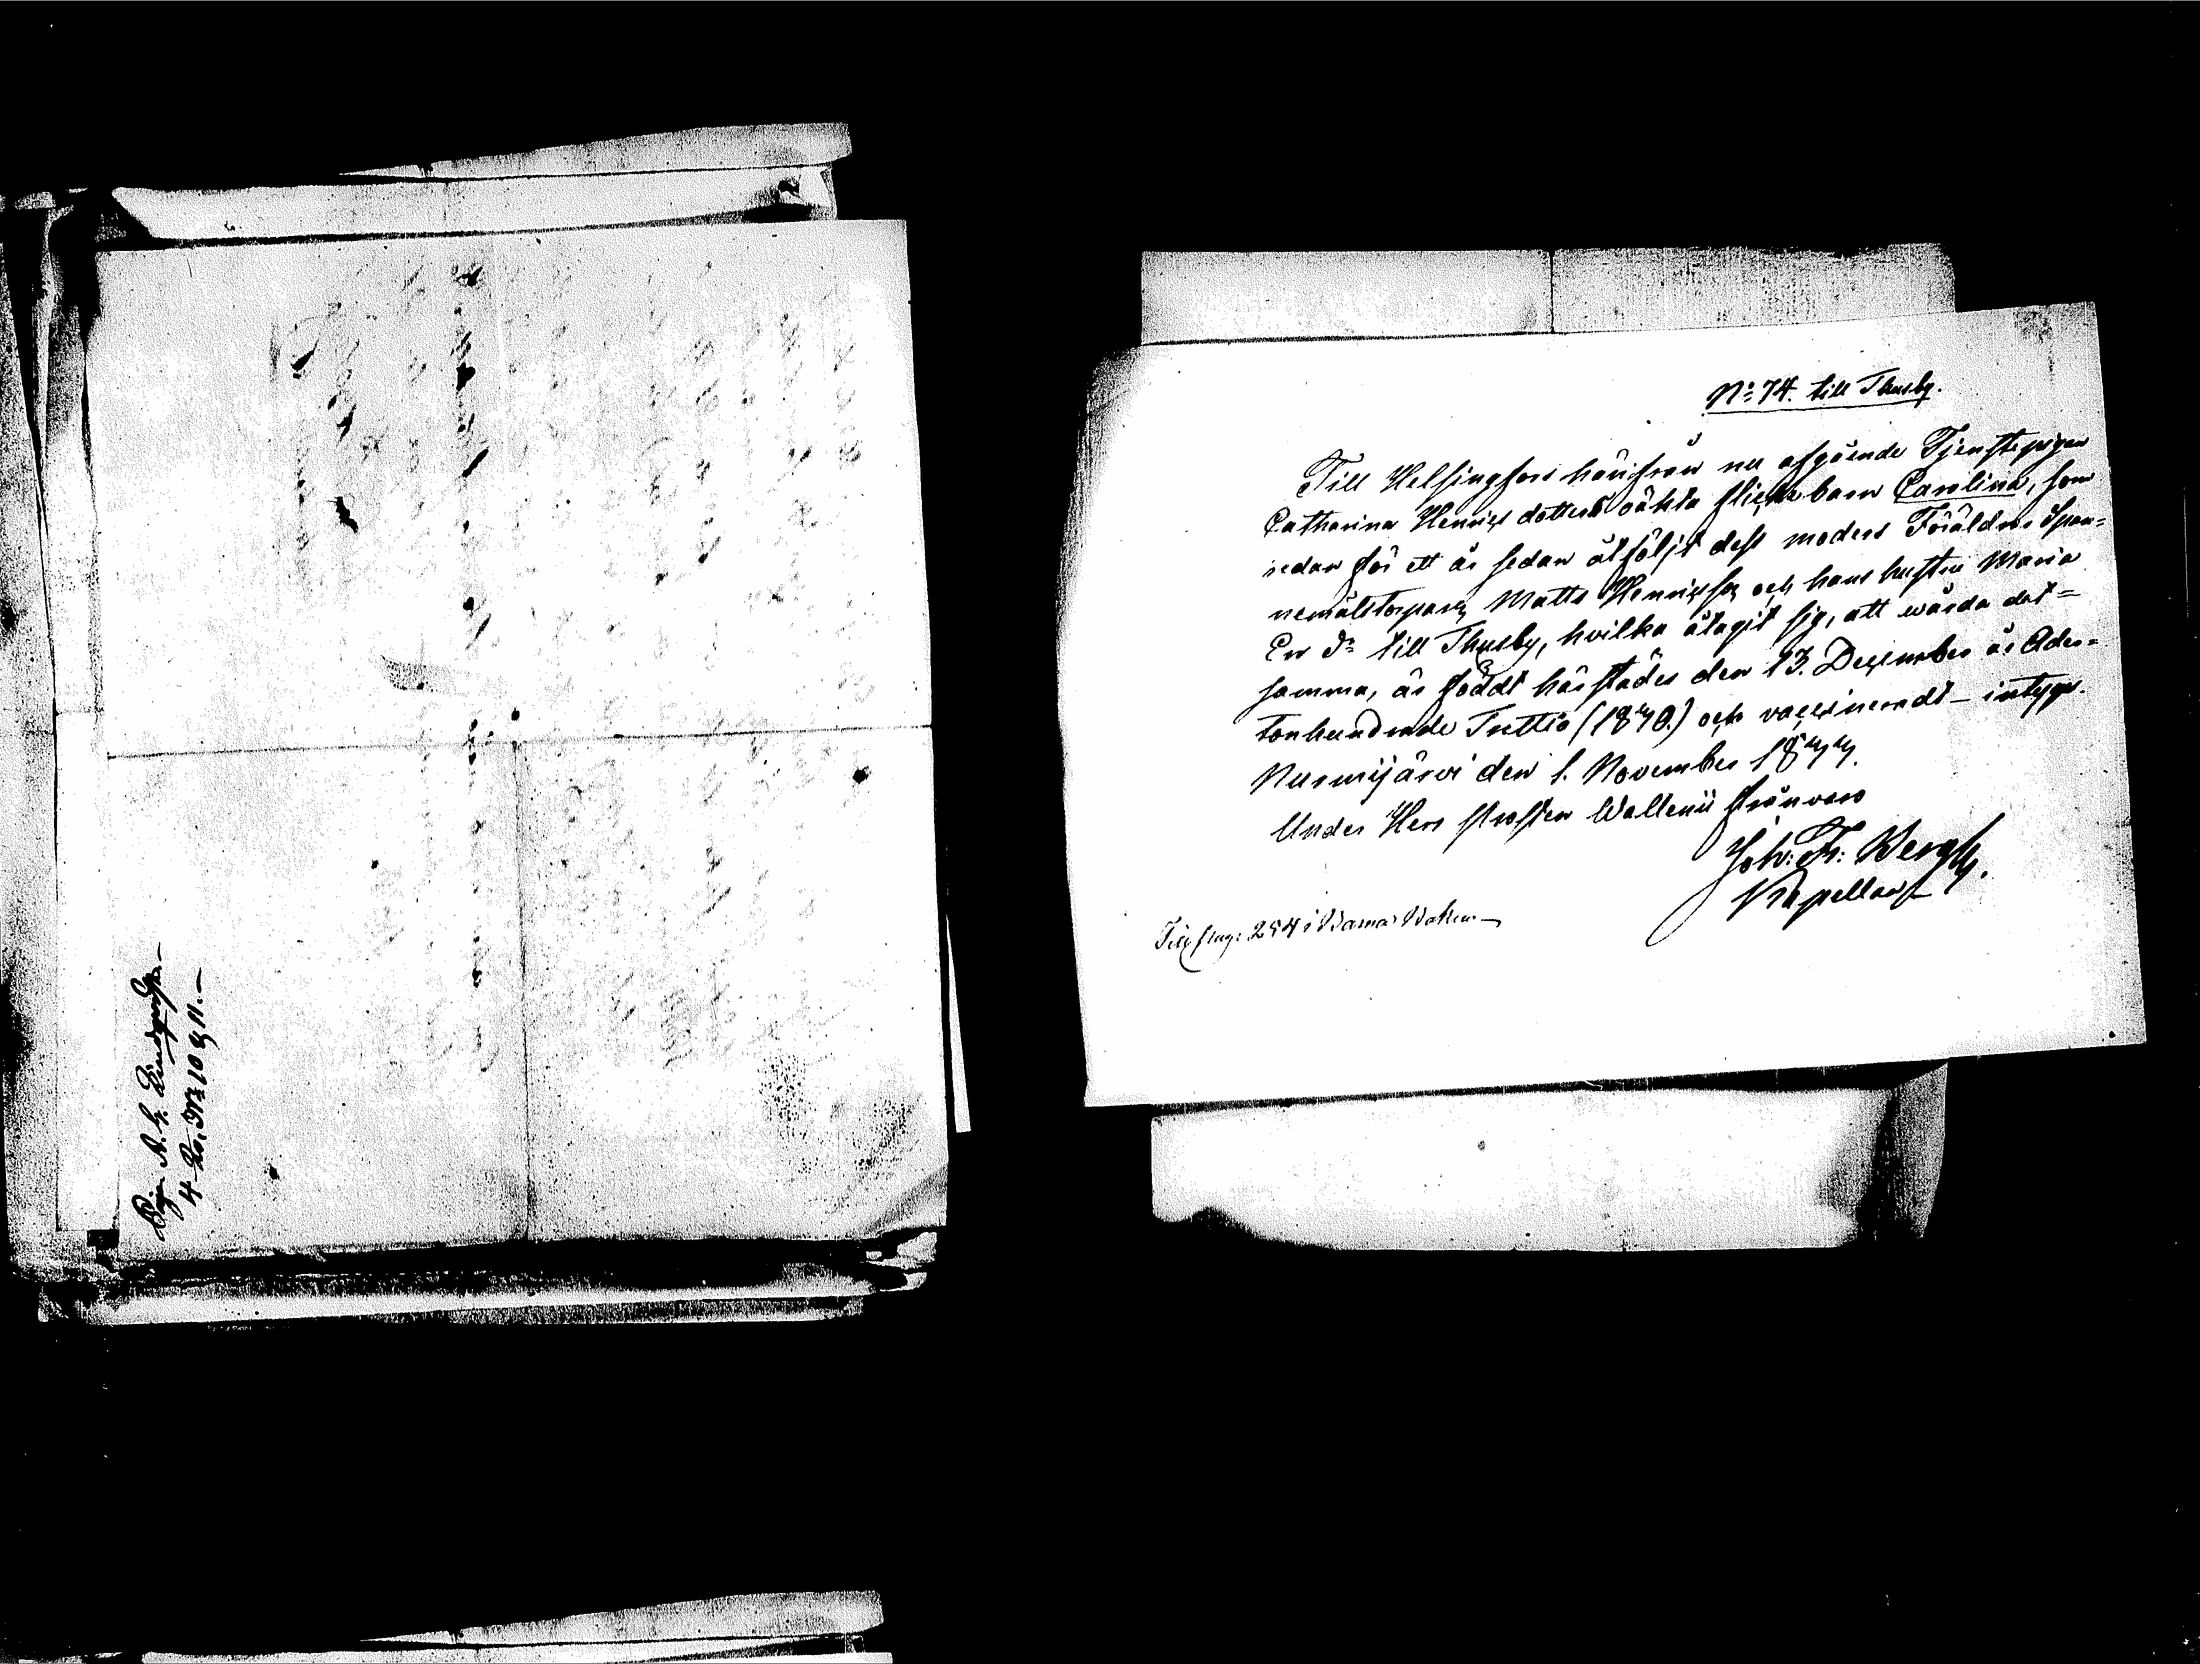 Piga A. G. Lindqvist.—
4 Ro. № 10 & 11.—
No 74. till Thusby.
Till Helsingfors härifrån nu afgående Tjenstepigan
Catharina Henricsdotters oäkta flickebarn Carolina, som
redan för ett år sedan åtföljt dess moders Föräldrar Span-
nemålstorparn Matts Henricss. och hans hustru Maria
Ers Dr till Thusby, hvilka åtagit sig, att vårda det-
samma, är föddt härstädes den 13. December år Ader-
tonhundrade Sjuttio (1870.) och vaccineradt – intygar.
Nurmijärvi den 1. November 1877.
Under Herr Prosten Wallenii frånvaro
Joh: Fr: Bergh.
Kapellan
254 i Barna Boken —